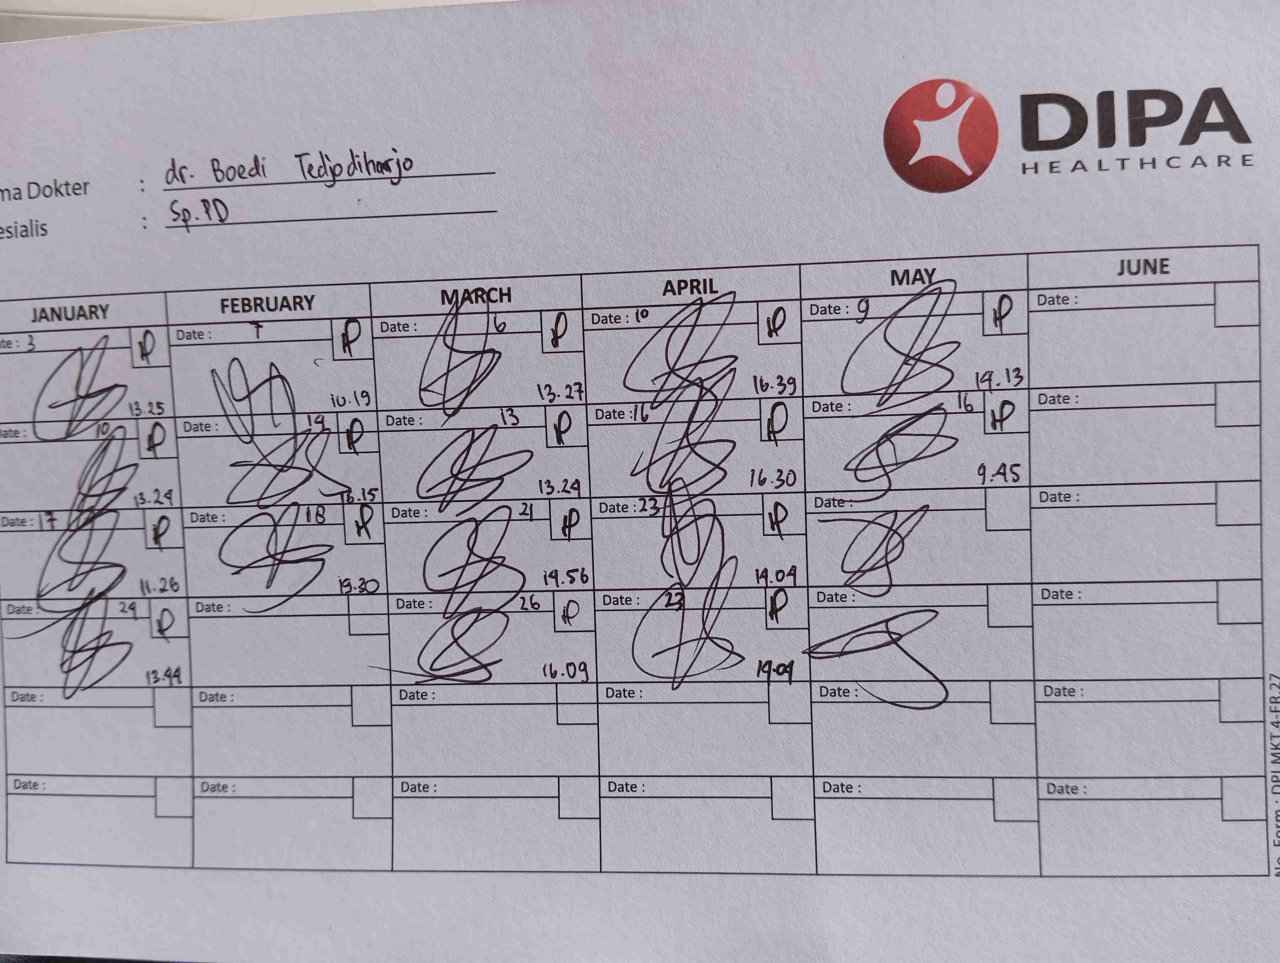 DIPA
HEALTHCARE
ma Dokter : dr. Boedi Tedjodiharjo
esialis : Sp.PD
JANUARY FEBRUARY MARCH APRIL MAY JUNE
te : 3 Date : 7 Date : 6 Date : 10 Date : 9 Date :
13.25 10.19 13.27 16.39 19.13
ate : 10 Date : 14 Date : 13 Date : 16 Date : 16 Date :
13.24 13.15 13.24 16.30 9.45
Date : 17 Date : 18 Date : 21 Date : 23 Date : Date :
11.26 19.30 19.56 19.09
Date : 24 Date : Date : 26 Date : 23 Date : Date :
13.44 16.09 19.09
Date : Date : Date : Date : Date : Date :
Date : Date : Date : Date : Date : Date :
No. Form : DPI.MKT.4-FR.27